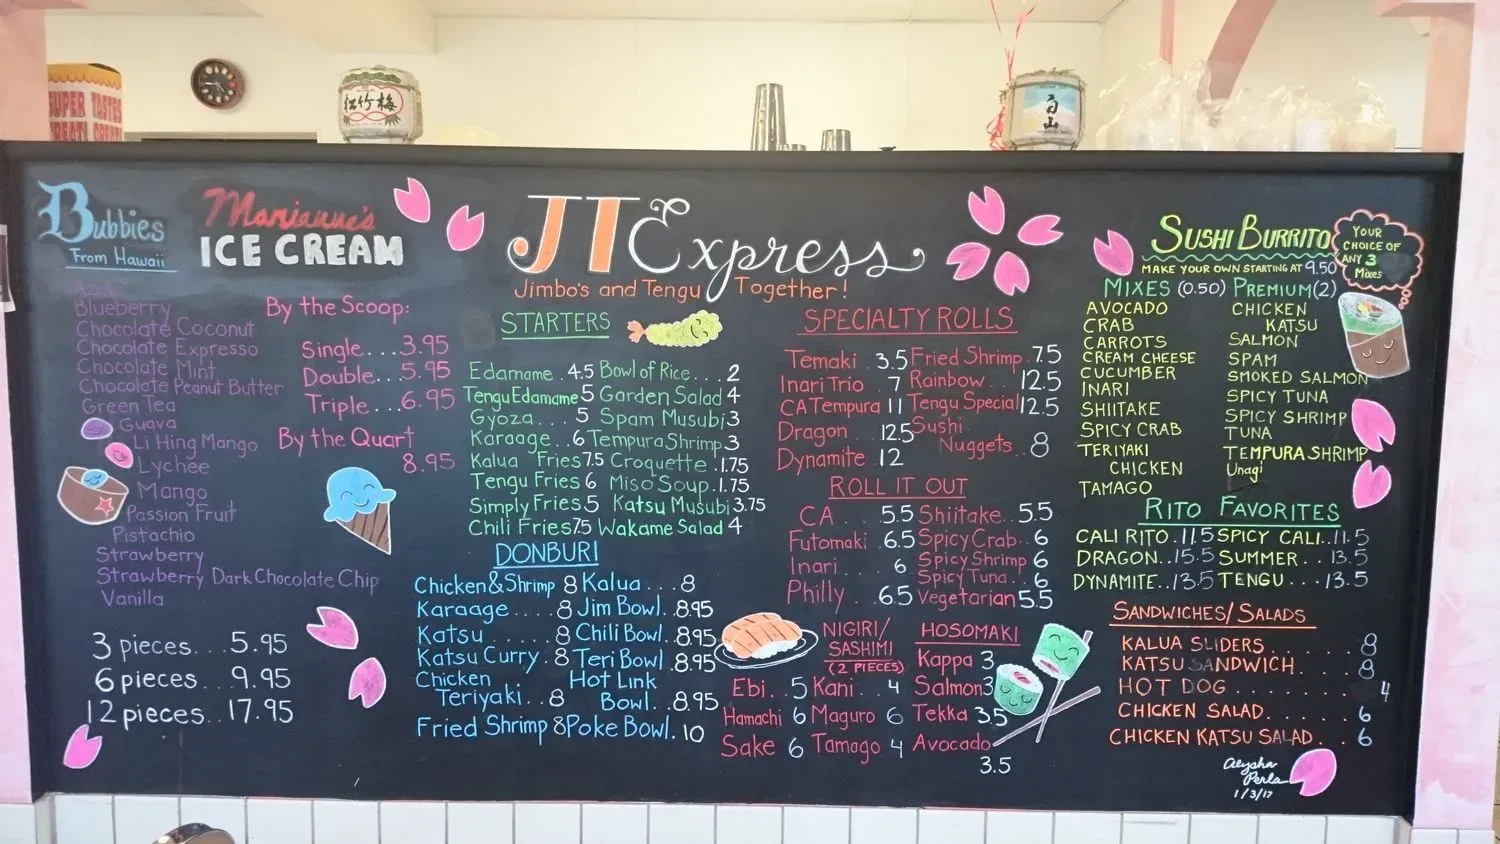 SUPER TASTES
GREAT!
松竹梅
白山
Bubbies
From Hawaii
Marianne's
ICE CREAM
Azuki
Blueberry
Chocolate Coconut
Chocolate Expresso
Chocolate Mint
Chocolate Peanut Butter
Green Tea
Guava
Li Hing Mango
Lychee
Mango
Passion Fruit
Pistachio
Strawberry
Strawberry Dark Chocolate Chip
Vanilla
3 pieces...5.95
6 pieces...9.95
12 pieces..17.95
By the Scoop:
Single...3.95
Double...5.95
Triple...6.95
By the Quart
8.95
JT Express
Jimbo's and Tengu Together!
STARTERS
Edamame .4.5 Bowl of Rice...2
Tengu Edamame 5 Garden Salad 4
Gyoza... 5 Spam Musubi 3
Karaage ..6 Tempura Shrimp.3
Kalua Fries 7.5 Croquette .1.75
Tengu Fries 6 Miso Soup.1.75
Simply Fries.5 Katsu Musubi 3.75
Chili Fries 7.5 Wakame Salad 4
DONBURI
Chicken & Shrimp 8 Kalua...8
Karaage....8 Jim Bowl..8.95
Katsu.....8 Chili Bowl..8.95
Katsu Curry.8 Teri Bowl .8.95
Chicken Hot Link
Teriyaki..8 Bowl..8.95
Fried Shrimp 8 Poke Bowl. 10
SPECIALTY ROLLS
Temaki 3.5 Fried Shrimp 7.5
Inari Trio . 7 Rainbow...12.5
CA Tempura 11 Tengu Special 12.5
Dragon..12.5 Sushi
Nuggets..8
Dynamite .12
ROLL IT OUT
CA...5.5 Shiitake..5.5
Futomaki .6.5 Spicy Crab..6
Inari... 6 Spicy Shrimp 6
Spicy Tuna..6
Philly..6.5 Vegetarian 5.5
NIGIRI/
SASHIMI
(2 PIECES)
Ebi..5 Kani..4
Hamachi 6 Maguro 6
Sake 6 Tamago 4
HOSOMAKI
Kappa 3
Salmon 3
Tekka 3.5
Avocado
3.5
SUSHI BURRITO
MAKE YOUR OWN STARTING AT 9.50
YOUR
CHOICE OF
ANY 3
Mixes
MIXES (0.50)
AVOCADO
CRAB
CARROTS
CREAM CHEESE
CUCUMBER
INARI
SHIITAKE
SPICY CRAB
TERIYAKI
CHICKEN
TAMAGO
PREMIUM (2)
CHICKEN
KATSU
SALMON
SPAM
SMOKED SALMON
SPICY TUNA
SPICY SHRIMP
TUNA
TEMPURA SHRIMP
Unagi
RITO FAVORITES
CALI RITO.11.5 SPICY CALI..11.5
DRAGON..15.5 SUMMER...13.5
DYNAMITE..13.5 TENGU...13.5
SANDWICHES/SALADS
KALUA SLIDERS........8
KATSU SANDWICH....8
HOT DOG........4
CHICKEN SALAD......6
CHICKEN KATSU SALAD..6
Alysha
Perla
1/3/17